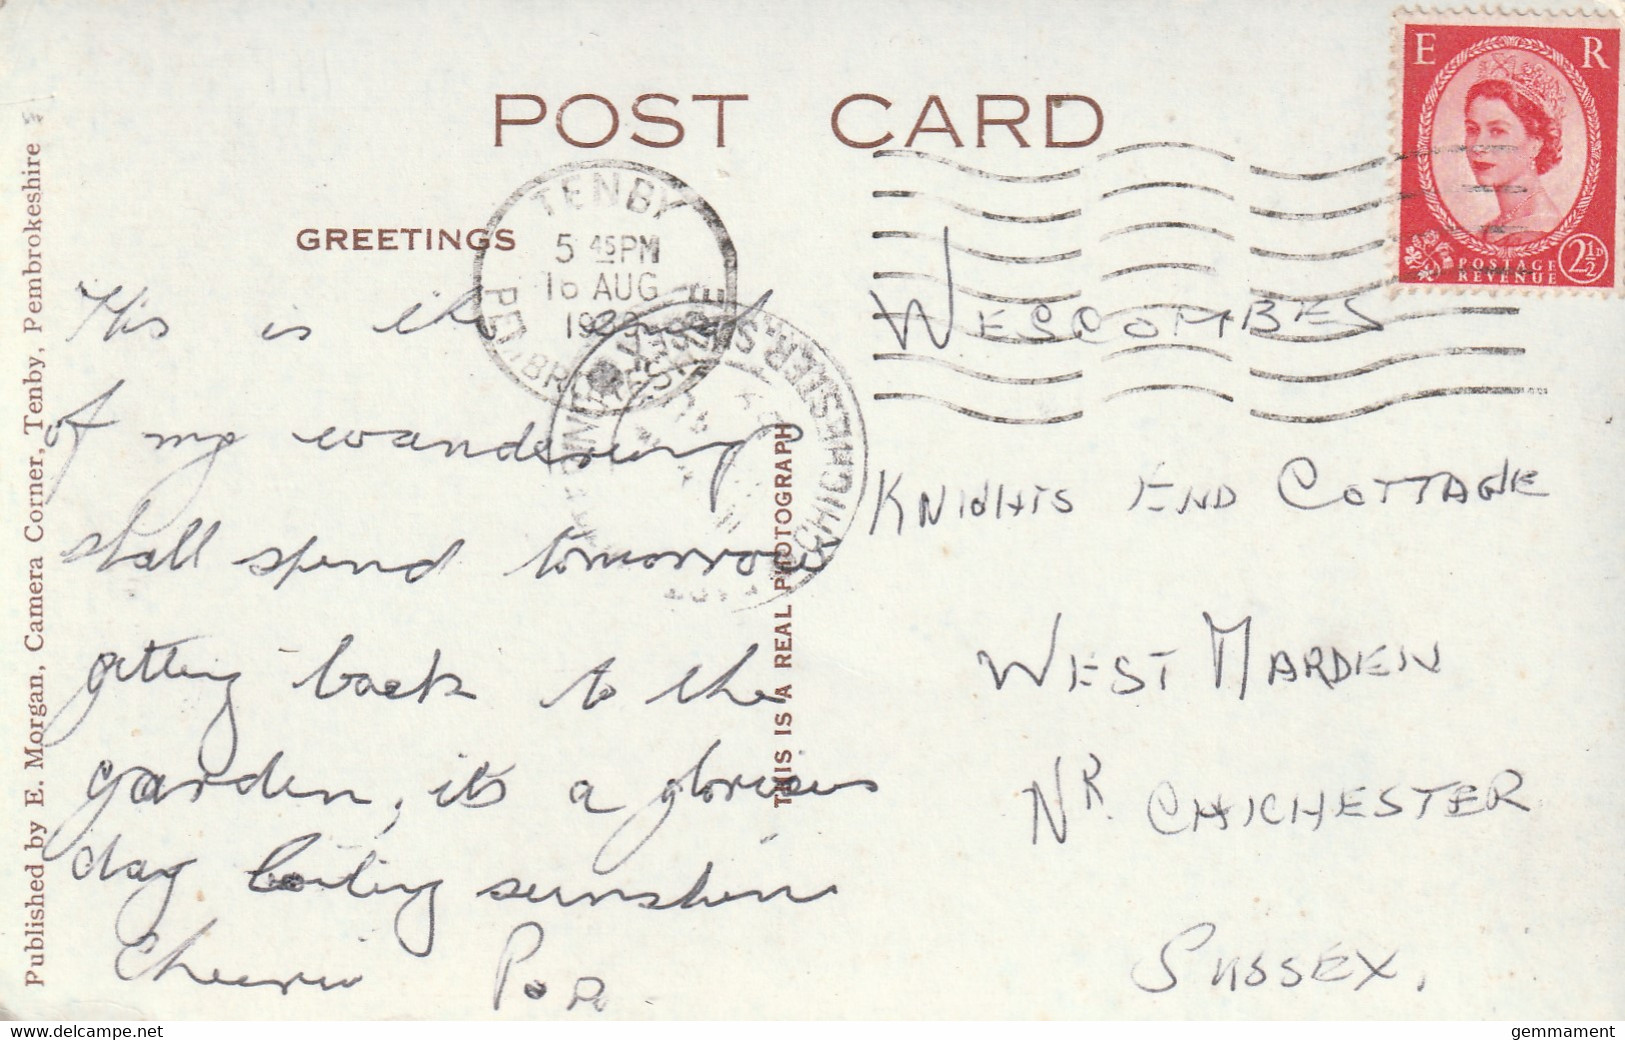 POST CARD
GREETINGS
This is the end
of my wandering
shall spend tomorrow
getting back to the
garden, it's a glorious
day boiling sunshine
Cheerio Pop.
WESCOMBES
KNIGHTS END COTTAGE
WEST MARDEN
NR. CHICHESTER
SUSSEX.
E R
POSTAGE
REVENUE
2½D
TENBY
5 45PM
16 AUG
PEMBROKESHIRE
CHICHESTER, SUSSEX
THIS IS A REAL PHOTOGRAPH
Published by E. Morgan, Camera Corner, Tenby, Pembrokeshire
www.delcampe.net
gemmament